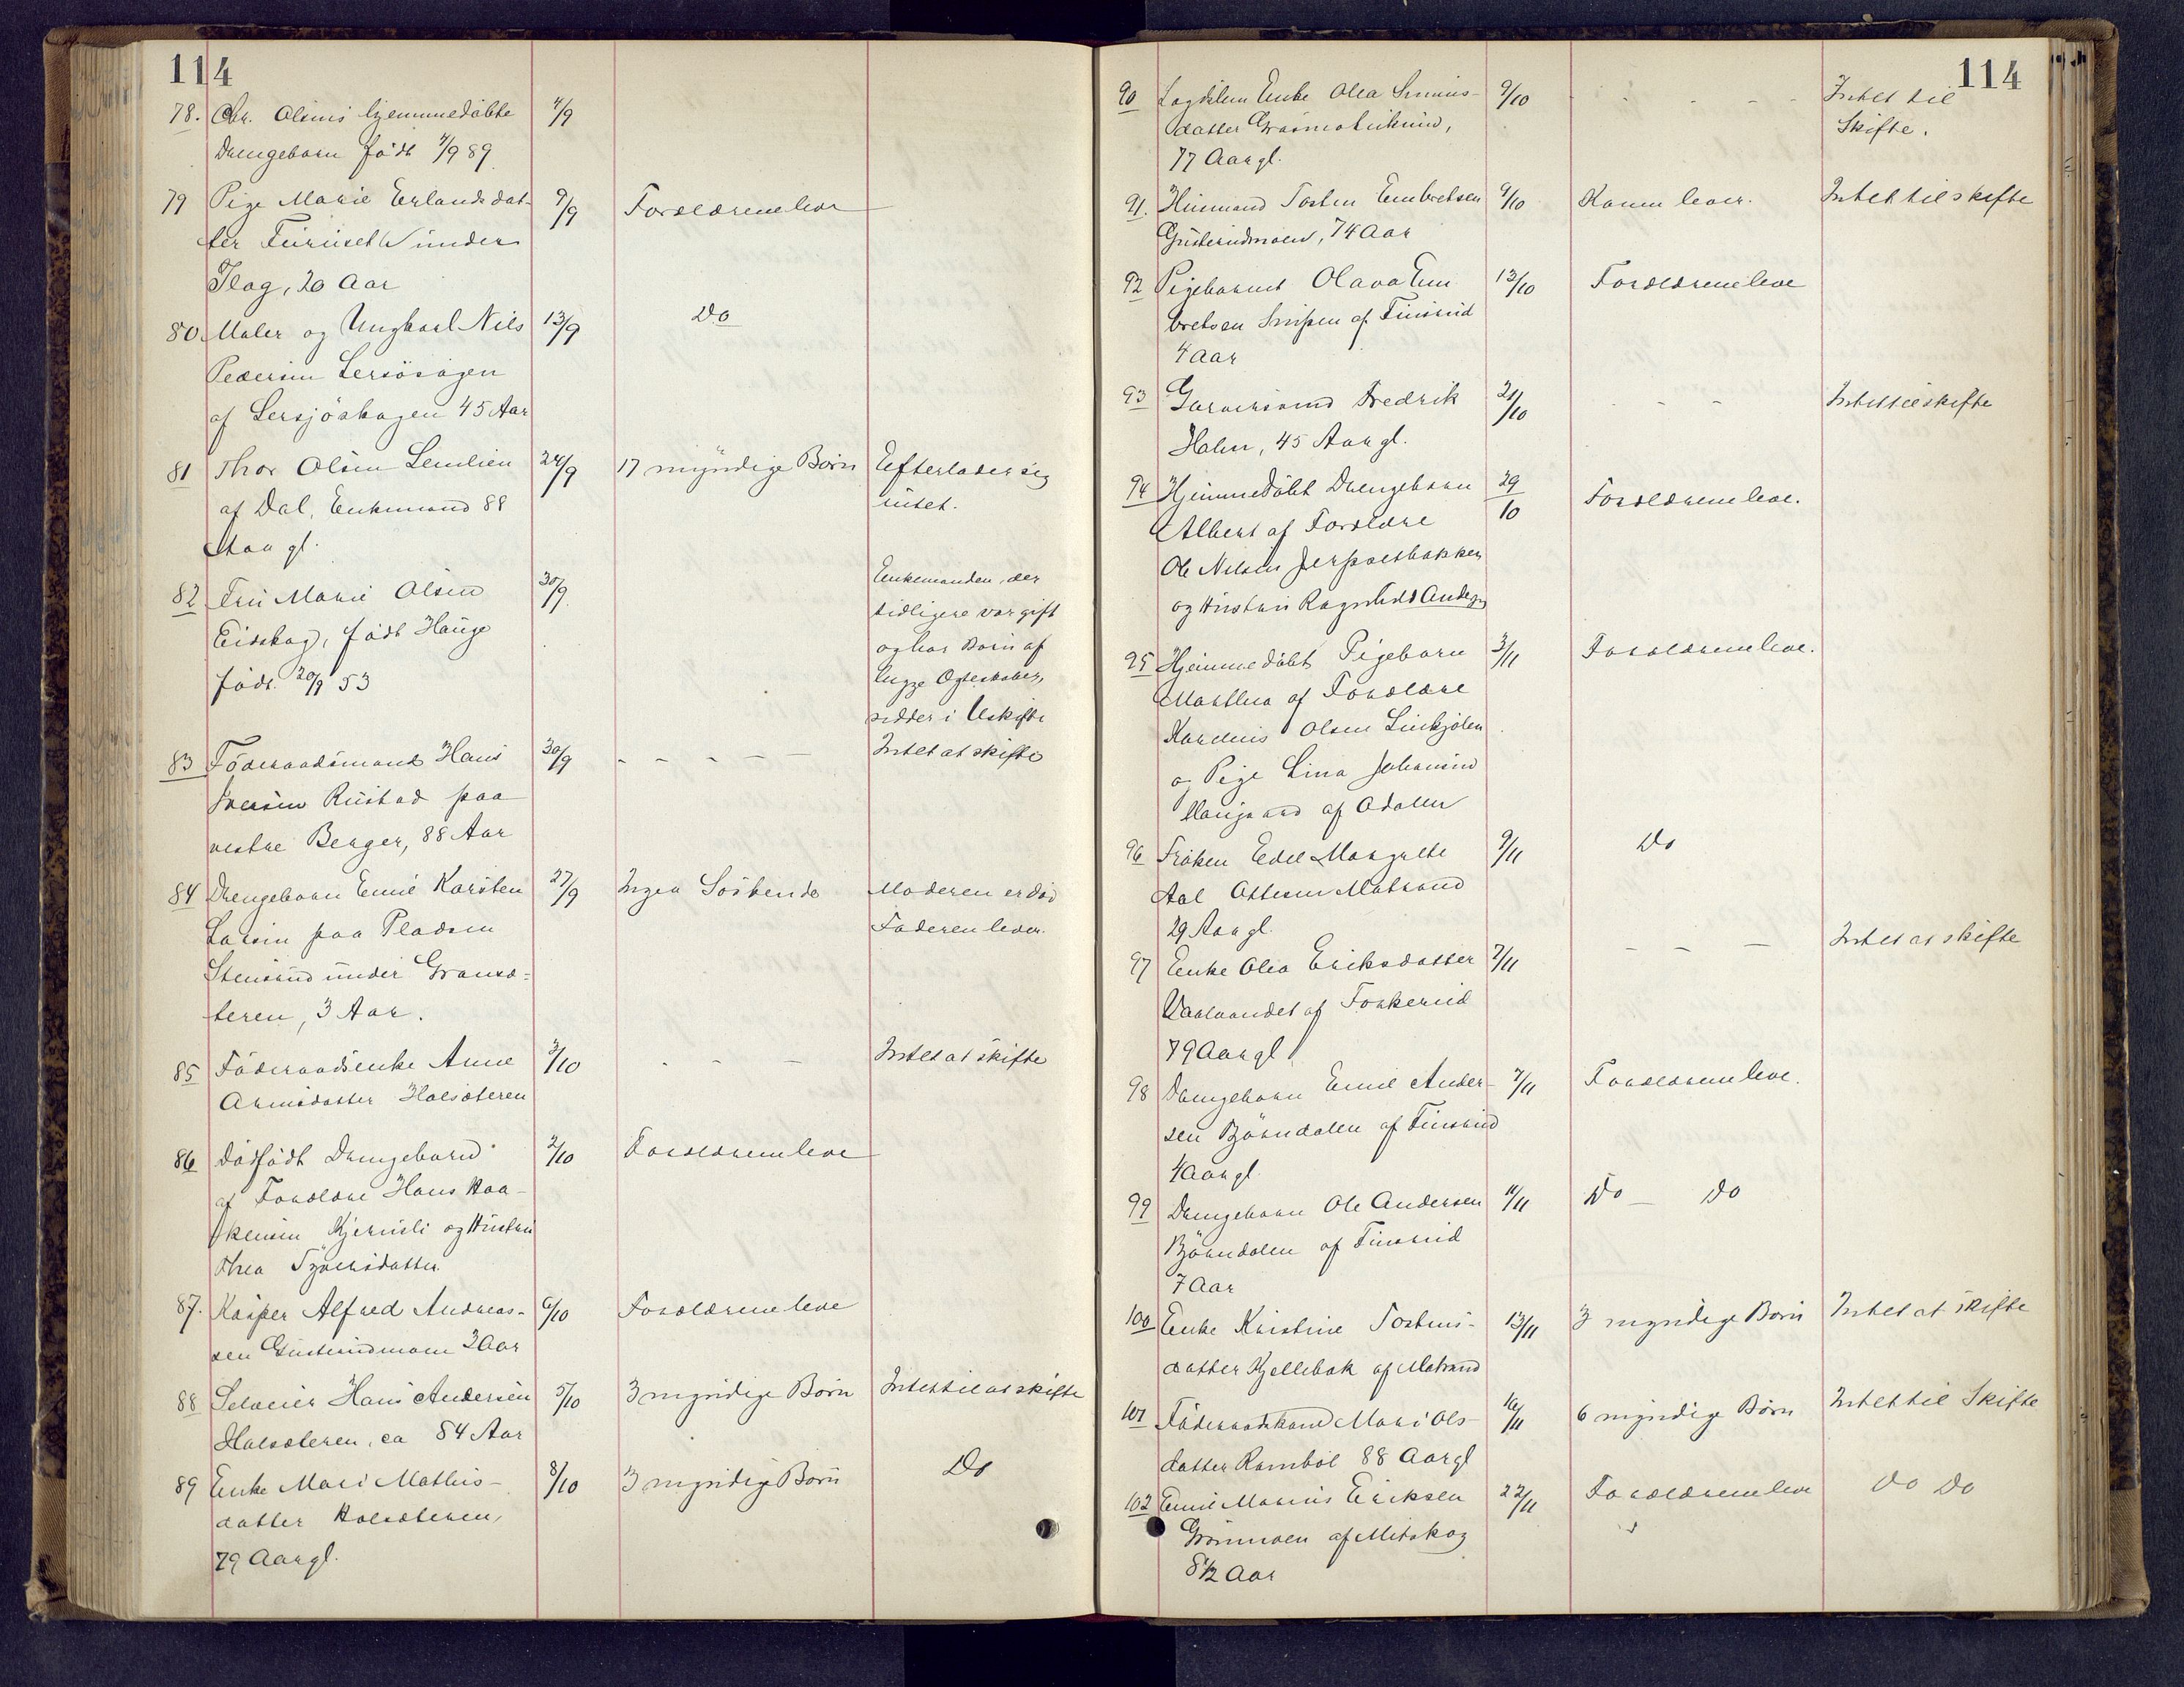 114
78. Chr. Olsens hjemmedøbte 4/9
Drengebarn født 4/9 89
79 Pige Marie Erlandsdat- 9/9 Forældrene leve
ter Furuset under
Flag, 20 Aar
80. Maler og Ungkarl Nils 13/9 Do
Pedersen
af Lersjöskogen 45 Aar
81 Thor Olsen Lemlien 24/9 17 myndige Børn Efterlader sig
af Dal, Enkemand 88 intet.
Aar gl.
82 Fru Marie Olsen 30/9 Enkemanden, der
Eidskog, født Hauge tidligere var gift
født 20/9 53 og har Børn af
begge Ægteskaber,
sidder i Uskifte
83 Föderaadsmand Hans 30/9 - - - - - Intet at skifte
Iversen Rustad paa
vestre Berger, 88 Aar
84 Drengebarn Emil Karsten 27/9 Ingen Söskende Moderen er död
Larsen paa Pladsen Faderen lever.
Stensrud under Gransæ-
teren, 3 Aar.
85 Föderaadsenke Anne 3/10 - - - Intet at skifte
Arnesdatter Halsæteren
86 Dødfødt Drengebarn 2/10 Forældrene leve
af Forældre Hans Haa-
kensen Kjernsli og Hustru
Thea
87. Kasper Alfred Andreas- 6/10 Forældrene leve
sen Gusterudmoen 3 Aar
88 Selveier Hans Andersen 5/10 3 myndige Børn Intet til at skifte
Halsæteren, ca 84 Aar
89 Enke Mari Mathis- 8/10 3 myndige Børn Do
datter Halsæteren,
79 Aar gl.
114
90 Lægdslem Enke Olea Simens- 9/10 - - - - Intet til
datter Skifte.
77 Aar gl.
91. Husmand Tosten Embretsen 9/10 Konen lever. Intet til skifte
Gusterudmoen, 74 Aar
92 Pigebarnet Olava Em 13/10 Forældrene leve
bretsen Snipen af Finsrud
4 Aar
93 Garversvend Fredrik 21/10 - - - Intet til skifte
Holm, 45 Aar gl.
94 Hjemmedøbt Drengebarn 29/10 Forældrene leve.
Albert af Forældre
Ole Nilsen Jerpsetbakken
og Hustru Ragnhild Andersen
95 Hjemmedøbt Pigebarn 3/11 Forældrene leve.
Marthea af Forældre
Karelius Olsen Linkjølen
og Pige Lina Johansen
Haugaard af Odalen
96 Frøken Edel Margrethe 9/11 Do
Aal Ottesen Matrand
29 Aar gl.
97 Enke Olea Eriksdatter 7/11 - - - Intet at skifte
Vaalaandet af Foskerud
79 Aar gl
98 Drengebarn Emil Ander- 7/11 Forældrene leve.
sen Bjørndalen af Finsrud
4 Aar gl.
99 Drengebarn Ole Andersen 11/11 Do — Do
Bjørndalen af Finsrud
7 Aar
100 Enke Kristine Tostens- 13/11 3 myndige Børn Intet at skifte
datter Kjellebak af Matrand
101 Føderaadskone Mari Ols- 16/11 6 myndige Børn Intet til Skifte
datter Rambøl 88 Aar gl
102 Emil Marius Eriksen 22/11 Forældrene leve Do Do
Grønmoen af Mitskog
8 1/2 Aar